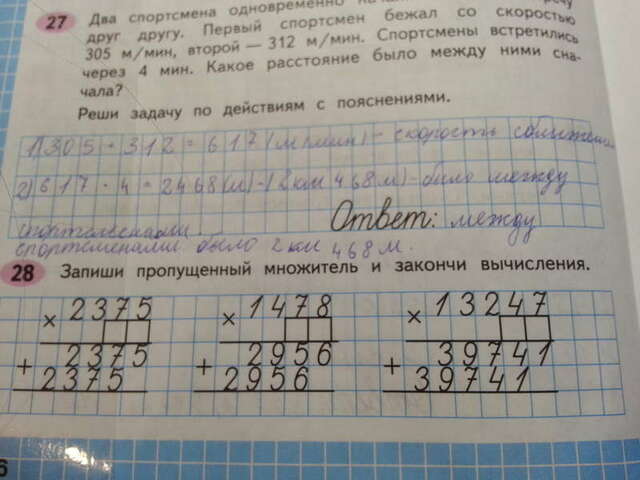 27 Два спортсмена одновременно
друг другу. Первый спортсмен бежал со скоростью
305 м/мин, второй — 312 м/мин. Спортсмены встретились
через 4 мин. Какое расстояние было между ними сна-
чала?
Реши задачу по действиям с пояснениями.
1) 305 + 312 = 617 (м/мин) - скорость сближения
2) 617 · 4 = 2468 (м) - (2 км 468 м) - было между
спортсменами. Ответ: между
спортсменами было 2 км 468 м.
28 Запиши пропущенный множитель и закончи вычисления.
× 2375 × 1478 × 13247
+ 2375 + 2956 + 39741
2375 2956 39741
6